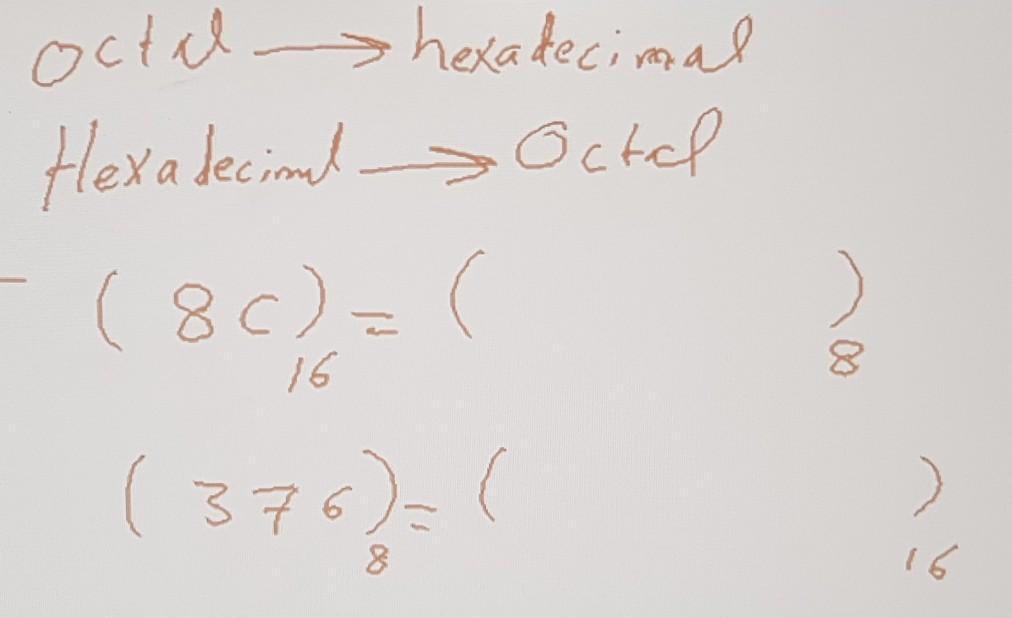 Octal → hexadecimal
Hexadecimal → Octal
- (8C)₁₆ = (      )₈
(376)₈ = (      )₁₆